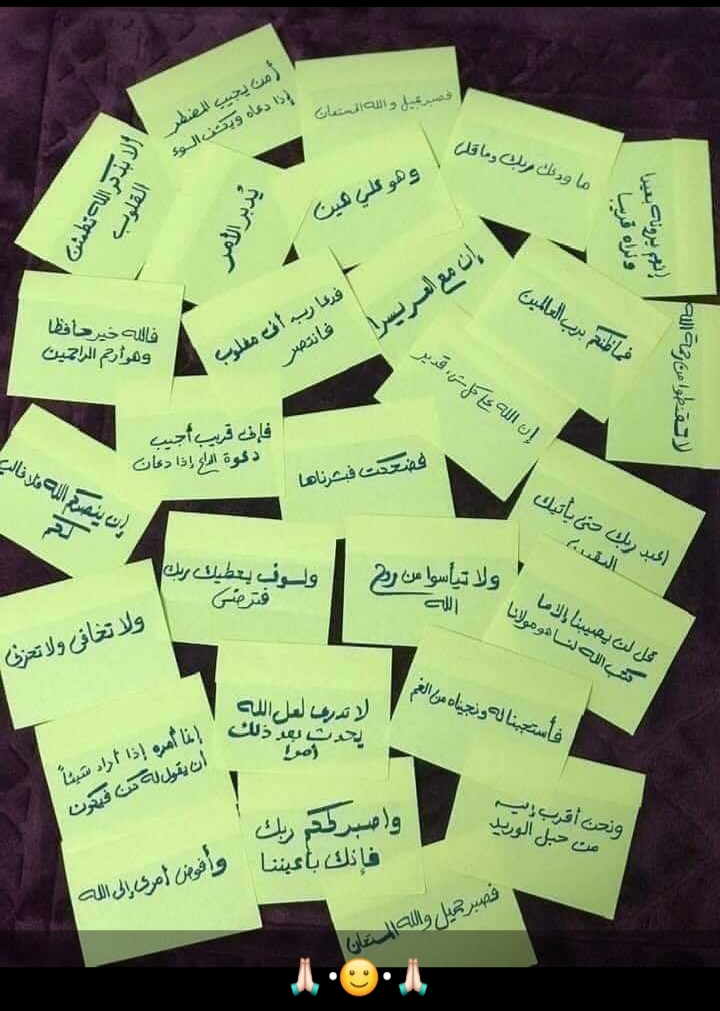 أمن يجيب المضطر
إذا دعاه ويكشف السوء
فصبر جميل والله المستعان
ما ودعك ربك وما قلى
إنهم يرونه بعيدا
ونراه قريبا
ألا بذكر الله تطمئن
القلوب
يُدبر الأمر
وهو علي هين
إن مع العسر يسرا
فما ظنكم برب العالمين
لا تقنطوا من رحمة الله
فالله خير حافظا
وهو أرحم الراحمين
فدعا ربه أني مغلوب
فانتصر
إن الله على كل شيء قدير
فإني قريب أجيب
دعوة الداع إذا دعان
فضحكت فبشرناها
إن ينصركم الله فلا غالب
لكم
اعبد ربك حتى يأتيك
اليقين
ولسوف يعطيك ربك
فترضى
ولا تيأسوا من روح
الله
قل لن يصيبنا إلا ما
كتب الله لنا هو مولانا
ولا تخافي ولا تحزني
لا تدري لعل الله
يحدث بعد ذلك
أمرا
فأستجبنا له ونجيناه من الغم
إنما أمره إذا أراد شيئاً
أن يقول له كن فيكون
واصبر لحكم ربك
فإنك بأعيننا
ونحن أقرب إليه
من حبل الوريد
وأفوض أمري إلى الله
فصبر جميل والله المستعان